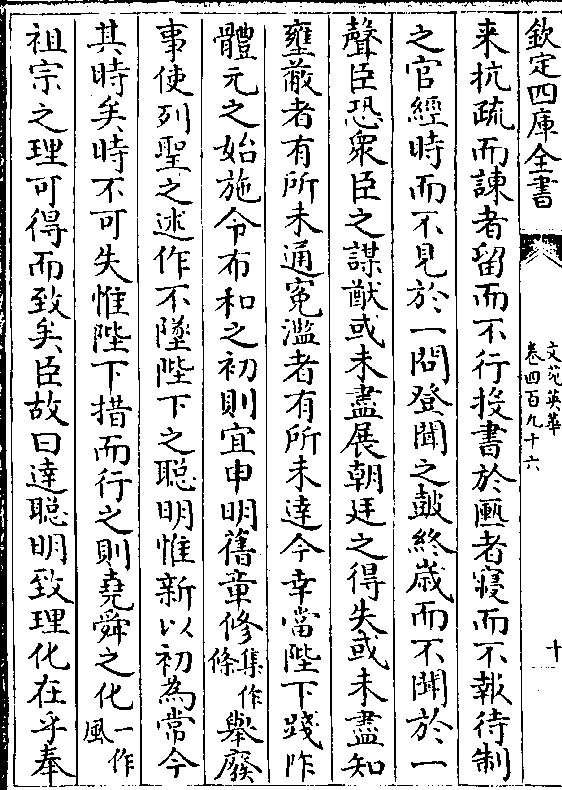 欽定四庫全書
文苑英華
卷四百九十六
十
来抗疏而諫者留而不行投書於匭者寢而不報待制
之官經時而不見於一問登聞之鼓終歲而不聞於一
聲臣恐衆臣之謀猷或未盡展朝廷之得失或未盡知
壅蔽者有所未通寃濫者有所未達今幸當陛下踐阼
體元之始施令布和之初則宜申明舊章修集作條舉廢
事使列聖之述作不墜陛下之聰明惟新以初為常今
其時矣時不可失惟陛下措而行之則堯舜之化一作風
祖宗之理可得而致矣臣故曰達聰明致理化在乎奉